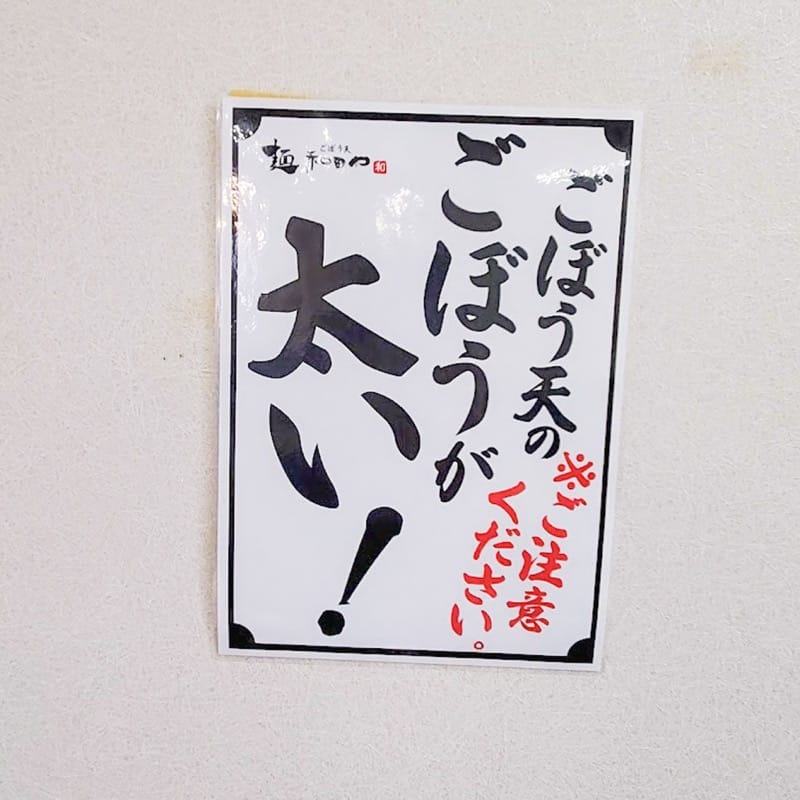 ごぼう天の
ごぼうが
太い!
※ご注意
ください。
ごぼう天
麺 和田や
和